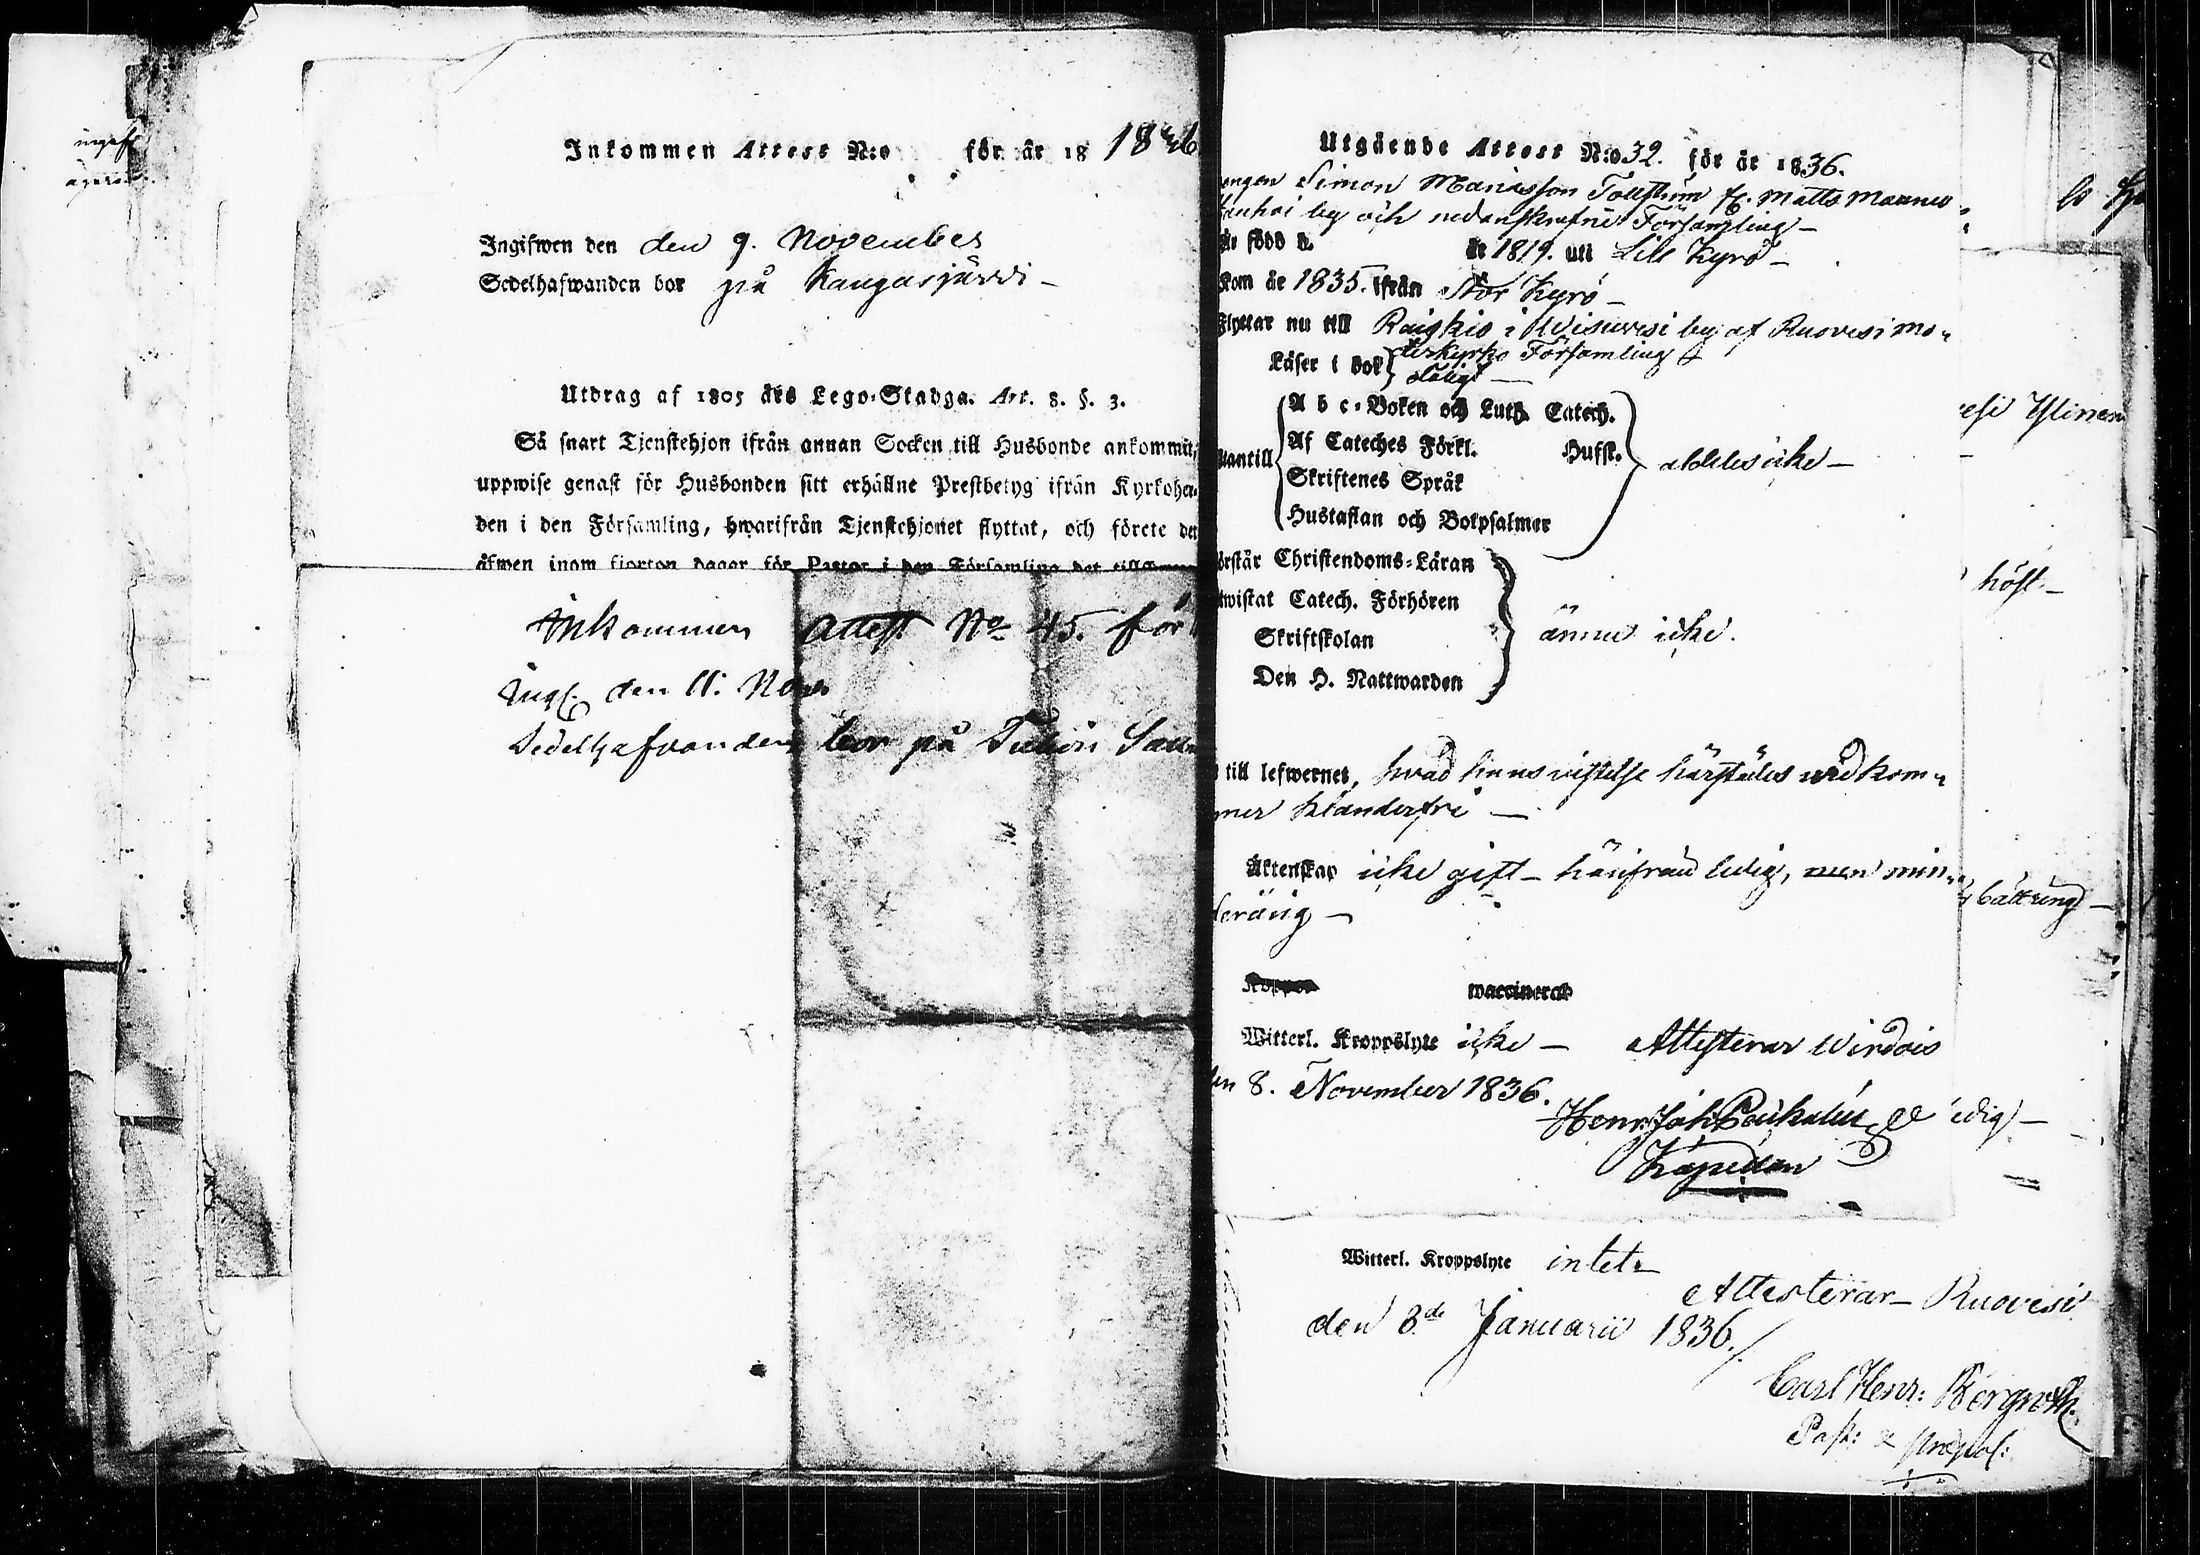 Inkommen Attest N:o för år 18 1836
Ingifwen den den 9. November
Sedelhafwanden bor på Kangasjärvi –
Utdrag af 1805 års Lego-Stadga. Art. 8. §. 3.
Så snart Tjenstehjon ifrån annan Socken till Husbonde ankommit,
uppwise genast för Husbonden sitt erhållne Prestbetyg ifrån Kyrkoher-
den i den Församling, hwarifrån Tjenstehjonet flyttat, och förete det
äfwen inom fjorton dagar för Pastor i den Församling det
Inkommen Attest No 45. för
Ingf. den 11. Nov.
Sedelhafvanden bor på
Utgående Attest N:o 32. för år 1836.
Simon Mattsson Tollström fr. Matts
by och nedanskrefne Församling –
Är född d. år 1819. uti Lill Kyro –
kom år 1835. ifrån Stor Kyrö –
Flyttar nu till i Wisuvesi by af Ruovesi mo-
derkyrko Församling
Läser i bok
A b c-Boken och Luth. Catech.
Af Cateches Förkl. Husst.
Utantill aldeles icke –
Skriftenes Språk
Hustaflan och Botpsalmer
Förstår Christendoms-Läran
Bewistat Catech. Förhören
Skriftskolan ännu icke.
Den H. Nattwarden
till lefwernet, hvad hans vistelse härstädes vidkom-
mer klanderfri –
Äktenskap icke gift – härifrån ledig, men min-
derårig –
Koppor waccinerad
Witterl. Kroppslyte icke – Attesterar Wirdois
den 8. November 1836.
Henr. Joh.
Kapellan
höst –
bättring –
ledig –
Witterl. Kroppslyte intet.
Attesterar – Ruovesi
den 8de Januarii 1836./.
Carl Henr: Bergroth.
Past: & Præpos: